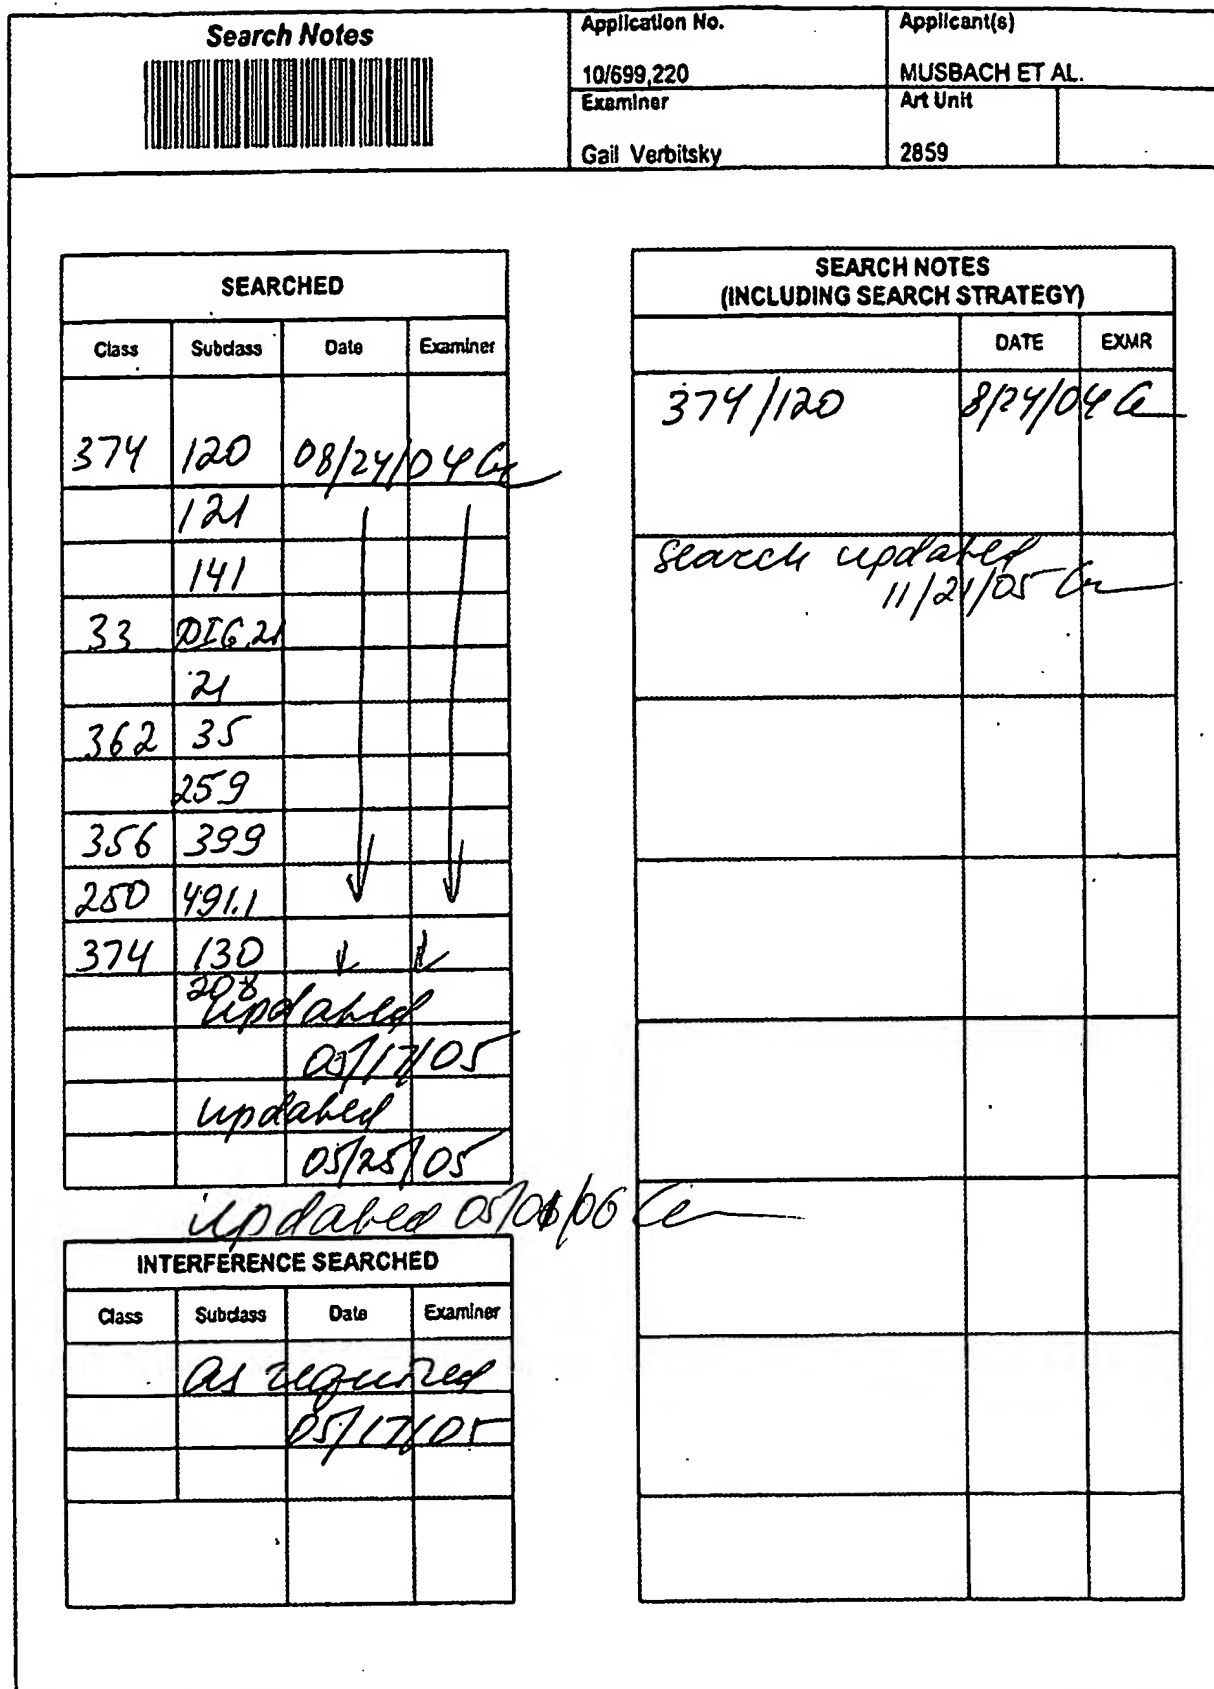 Search Notes
Application No.
10/699,220
Applicant(s)
MUSBACH ET AL.
Examiner
Gail Verbitsky
Art Unit
2859
SEARCHED
Class Subclass Date Examiner
374 120 08/24/04
121
141
33 DIG.21
21
362 35
259
356 399
250 491.1
374 130
208
updated
05/17/05
updated
05/25/05
updated 05/01/06
INTERFERENCE SEARCHED
Class Subclass Date Examiner
as required
05/17/05
SEARCH NOTES
(INCLUDING SEARCH STRATEGY)
DATE EXMR
374/120 8/24/04
search updated
11/21/05